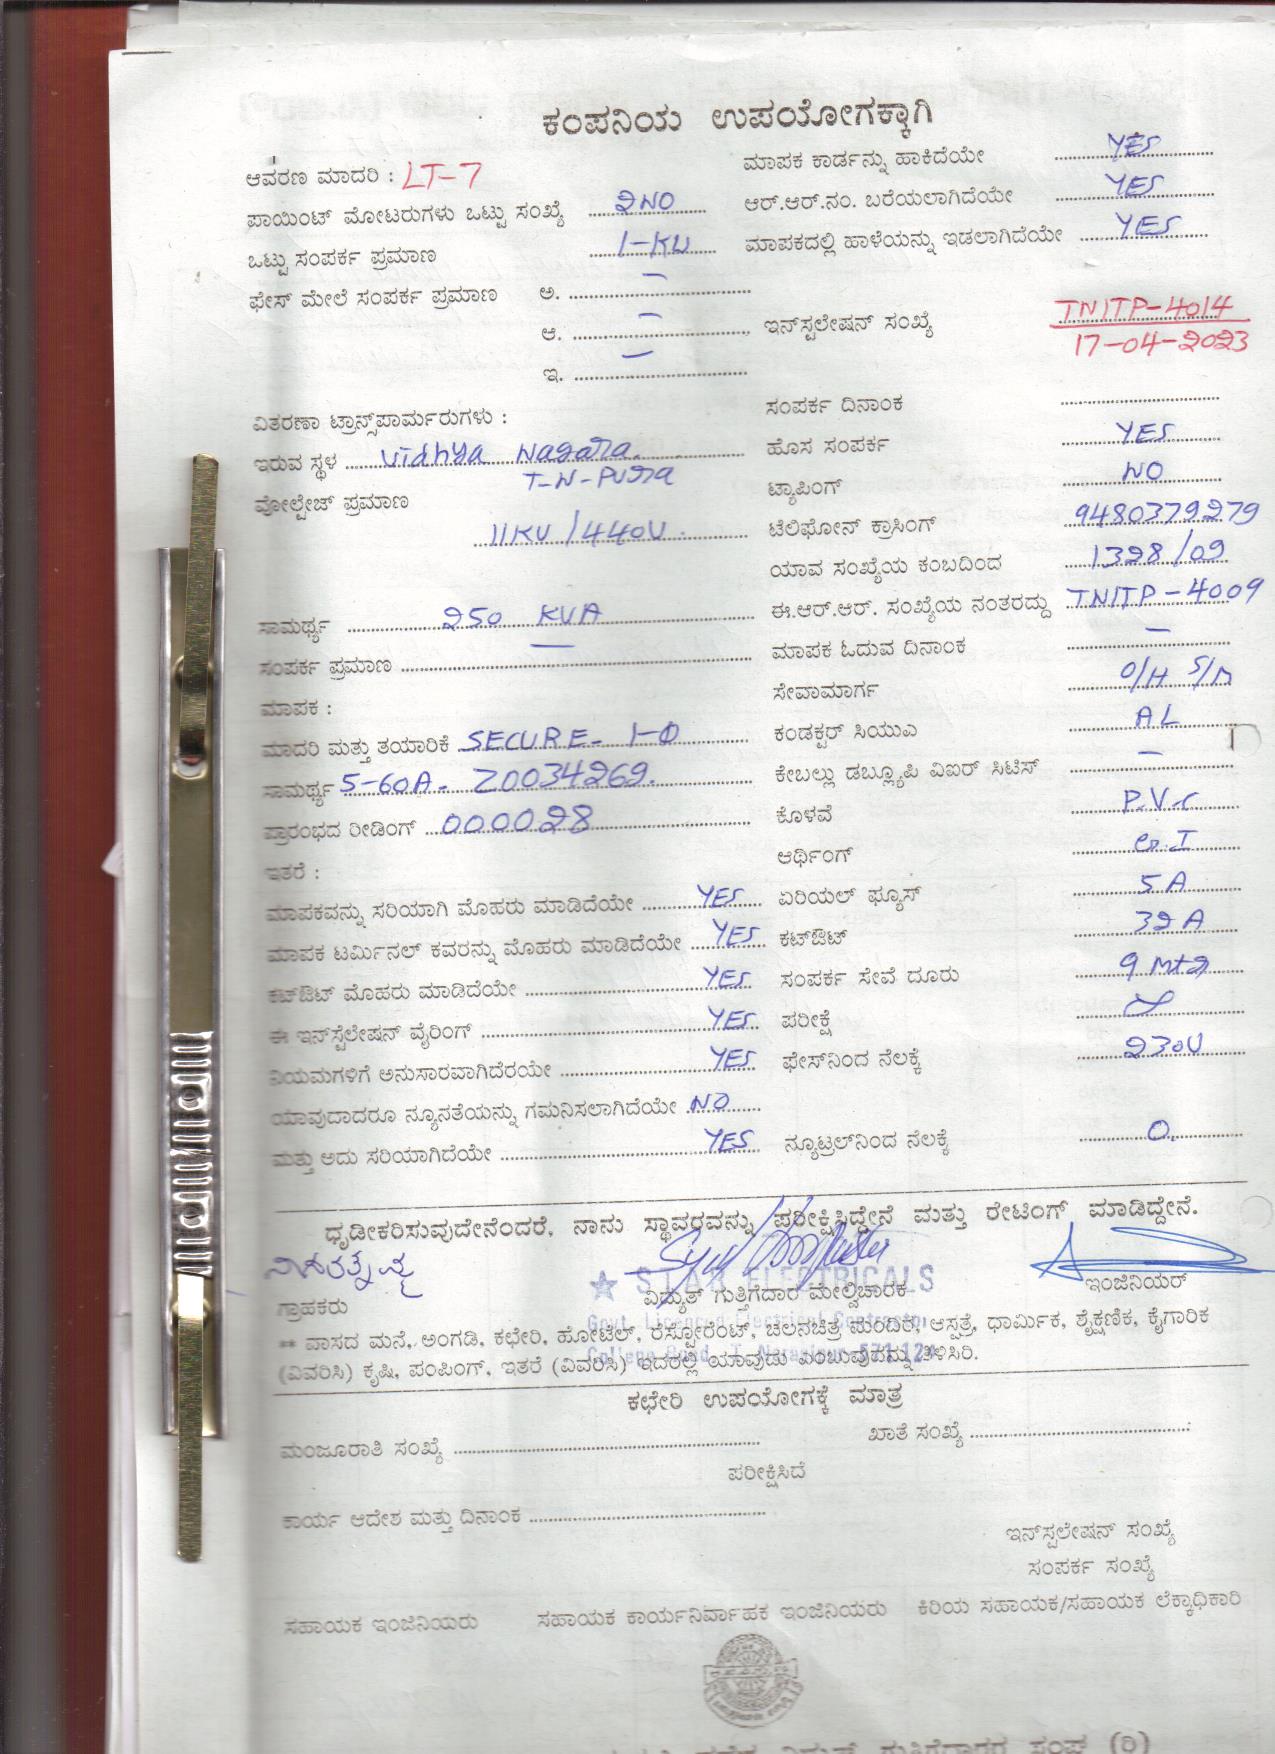 ಕಂಪನಿಯ ಉಪಯೋಗಕ್ಕಾಗಿ
ಆವರಣ ಮಾದರಿ : LT-7
ಮಾಪಕ ಕಾರ್ಡನ್ನು ಹಾಕಿದೆಯೇ YES
ಪಾಯಿಂಟ್ ಮೋಟರುಗಳು ಒಟ್ಟು ಸಂಖ್ಯೆ 2NO
ಆರ್.ಆರ್.ನಂ. ಬರೆಯಲಾಗಿದೆಯೇ YES
ಒಟ್ಟು ಸಂಪರ್ಕ ಪ್ರಮಾಣ 1-KW
ಮಾಪಕದಲ್ಲಿ ಹಾಳೆಯನ್ನು ಇಡಲಾಗಿದೆಯೇ YES
ಫೇಸ್ ಮೇಲೆ ಸಂಪರ್ಕ ಪ್ರಮಾಣ ಅ. —
ಆ. —
ಇ. —
ಇನ್‌ಸ್ಟಲೇಷನ್ ಸಂಖ್ಯೆ TNITP-4014
17-04-2023
ವಿತರಣಾ ಟ್ರಾನ್ಸ್‌ಪಾರ್ಮರುಗಳು :
ಸಂಪರ್ಕ ದಿನಾಂಕ
ಇರುವ ಸ್ಥಳ Vidhya Nagara.
T-N-Pura
ಹೊಸ ಸಂಪರ್ಕ YES
ವೋಲ್ಟೇಜ್ ಪ್ರಮಾಣ
11KV/440V
ಟ್ಯಾಪಿಂಗ್ NO
ಟೆಲಿಫೋನ್ ಕ್ರಾಸಿಂಗ್ 9480379279
ಯಾವ ಸಂಖ್ಯೆಯ ಕಂಬದಿಂದ 1328/09
ಸಾಮರ್ಥ್ಯ 250 KVA
ಈ.ಆರ್.ಆರ್. ಸಂಖ್ಯೆಯ ನಂತರದ್ದು TNITP-4009
ಸಂಪರ್ಕ ಪ್ರಮಾಣ —
ಮಾಪಕ ಓದುವ ದಿನಾಂಕ —
ಮಾಪಕ :
ಸೇವಾಮಾರ್ಗ O/H S/M
ಮಾದರಿ ಮತ್ತು ತಯಾರಿಕೆ SECURE- 1-Φ
ಕಂಡಕ್ಟರ್ ಸಿಯುಎ AL
ಸಾಮರ್ಥ್ಯ 5-60A- Z0034269.
ಕೇಬಲ್ಲು ಡಬ್ಲ್ಯೂಪಿ ವಿಐರ್ ಸಿಟಿಸ್ —
ಪ್ರಾರಂಭದ ರೀಡಿಂಗ್ 000028
ಕೊಳವೆ P.V.C
ಇತರೆ :
ಆರ್ಥಿಂಗ್ G.I
ಮಾಪಕವನ್ನು ಸರಿಯಾಗಿ ಮೊಹರು ಮಾಡಿದೆಯೇ YES
ಏರಿಯಲ್ ಫ್ಯೂಸ್ 5A
ಮಾಪಕ ಟರ್ಮಿನಲ್ ಕವರನ್ನು ಮೊಹರು ಮಾಡಿದೆಯೇ YES
ಕಟ್‌ಔಟ್ 32A
ಕಟ್‌ಔಟ್ ಮೊಹರು ಮಾಡಿದೆಯೇ YES
ಸಂಪರ್ಕ ಸೇವೆ ದೂರು 9 Mtr
ಈ ಇನ್‌ಸ್ಟೆಲೇಷನ್ ವೈರಿಂಗ್ YES
ಪರೀಕ್ಷೆ
ನಿಯಮಗಳಿಗೆ ಅನುಸಾರವಾಗಿದೆರಯೇ YES
ಫೇಸ್‌ನಿಂದ ನೆಲಕ್ಕೆ 230V
ಯಾವುದಾದರೂ ನ್ಯೂನತೆಯನ್ನು ಗಮನಿಸಲಾಗಿದೆಯೇ NO
ಮತ್ತು ಅದು ಸರಿಯಾಗಿದೆಯೇ YES
ನ್ಯೂಟ್ರಲ್‌ನಿಂದ ನೆಲಕ್ಕೆ 0.
ಧೃಡೀಕರಿಸುವುದೇನೆಂದರೆ, ನಾನು ಸ್ಥಾವರವನ್ನು ಪರೀಕ್ಷಿಸಿದ್ದೇನೆ ಮತ್ತು ರೇಟಿಂಗ್ ಮಾಡಿದ್ದೇನೆ.
STAR ELECTRICALS
ಗ್ರಾಹಕರು ವಿದ್ಯುತ್ ಗುತ್ತಿಗೆದಾರ ಮೇಲ್ವಿಚಾರಕ ಇಂಜಿನಿಯರ್
Govt. Licenced Electrical Contractor
** ವಾಸದ ಮನೆ, ಅಂಗಡಿ, ಕಛೇರಿ, ಹೋಟೆಲ್, ರೆಸ್ಟೋರೆಂಟ್, ಚಲನಚಿತ್ರ ಮಂದಿರ, ಆಸ್ಪತ್ರೆ, ಧಾರ್ಮಿಕ, ಶೈಕ್ಷಣಿಕ, ಕೈಗಾರಿಕ
College Road, T. Narasipur-571 124
(ವಿವರಿಸಿ) ಕೃಷಿ, ಪಂಪಿಂಗ್, ಇತರೆ (ವಿವರಿಸಿ) ಇದರಲ್ಲಿ ಯಾವುದು ಎಂಬುವುದನ್ನು ತಿಳಿಸಿರಿ.
ಕಛೇರಿ ಉಪಯೋಗಕ್ಕೆ ಮಾತ್ರ
ಮಂಜೂರಾತಿ ಸಂಖ್ಯೆ
ಖಾತೆ ಸಂಖ್ಯೆ
ಪರೀಕ್ಷಿಸಿದೆ
ಕಾರ್ಯ ಆದೇಶ ಮತ್ತು ದಿನಾಂಕ
ಇನ್‌ಸ್ಟಲೇಷನ್ ಸಂಖ್ಯೆ
ಸಂಪರ್ಕ ಸಂಖ್ಯೆ
ಸಹಾಯಕ ಇಂಜಿನಿಯರು ಸಹಾಯಕ ಕಾರ್ಯನಿರ್ವಾಹಕ ಇಂಜಿನಿಯರು ಕಿರಿಯ ಸಹಾಯಕ/ಸಹಾಯಕ ಲೆಕ್ಕಾಧಿಕಾರಿ
ವಿದ್ಯುತ್ ಗುತ್ತಿಗೆದಾರರ ಸಂಘ (ರಿ)